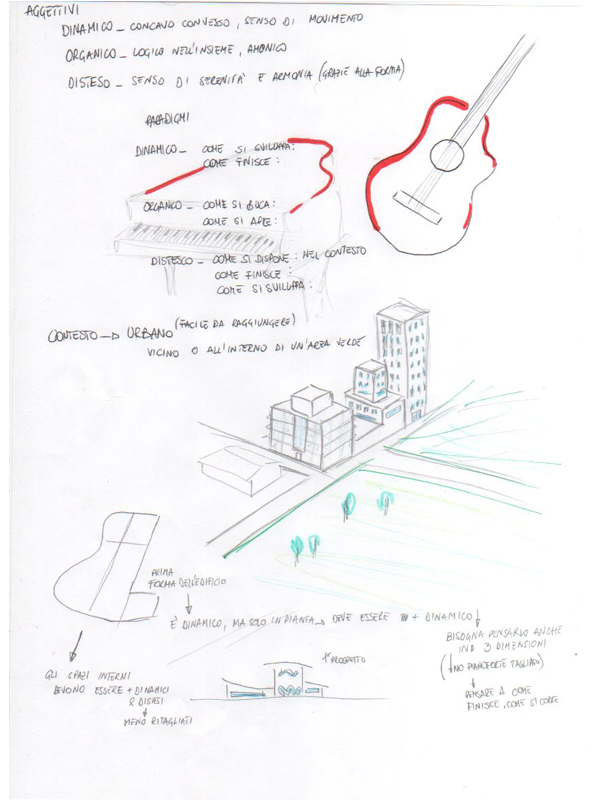 AGGETTIVI
DINAMICO – CONCAVO CONVESSO, SENSO DI MOVIMENTO
ORGANICO – LOGICO NELL'INSIEME, AMONICO
DISTESO – SENSO DI SERENITÀ E ARMONIA (GRAZIE ALLA FORMA)
PARADIGMI
DINAMICO – COME SI SVILUPPA:
COME FINISCE:
ORGANICO – COME SI BUCA:
COME SI APRE:
DISTESCO – COME SI DISPONE: NEL CONTESTO
COME FINISCE:
COME SI SVILUPPA:
CONTESTO → URBANO (FACILE DA RAGGIUNGERE)
VICINO O ALL'INTERNO DI UN'AREA VERDE
PRIMA
FORMA DELL'EDIFICIO
È DINAMICO, MA SOLO IN PIANTA → DEVE ESSERE + DINAMICO
BISOGNA PENSARLO ANCHE
IN 3 DIMENSIONI
(NO PIANOFORTE TAGLIATO)
PENSARE A COME
FINISCE, COME SI COPRE
GLI SPAZI INTERNI
DEVONO ESSERE + DINAMICI
E DISTESI
MENO RITAGLIATI
1° PROSPETTO